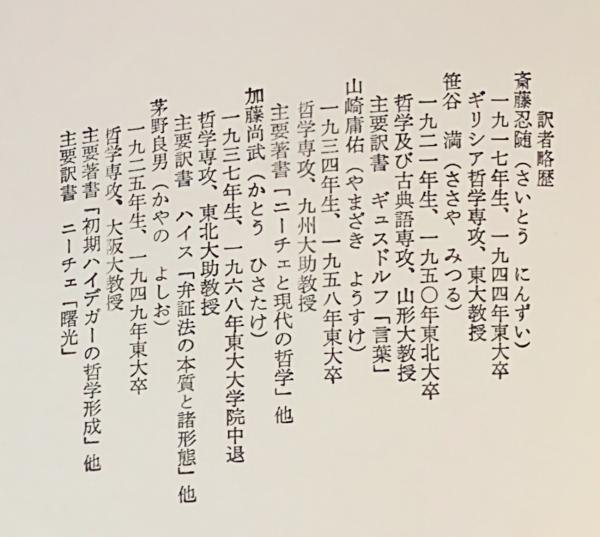 訳者略歴
斎藤忍随（さいとう　にんずい）
一九一七年生、一九四四年東大卒
ギリシア哲学専攻、東大教授
笹谷　満（ささや　みつる）
一九二一年生、一九五〇年東北大卒
哲学及び古典語専攻、山形大教授
主要訳書　ギュスドルフ「言葉」
山崎庸佑（やまざき　ようすけ）
一九三四年生、一九五八年東大卒
哲学専攻、九州大助教授
主要著書「ニーチェと現代の哲学」他
加藤尚武（かとう　ひさたけ）
一九三七年生、一九六八年東大大学院中退
哲学専攻、東北大助教授
主要訳書　ハイス「弁証法の本質と諸形態」他
茅野良男（かやの　よしお）
一九二五年生、一九四九年東大卒
哲学専攻、大阪大教授
主要著書「初期ハイデガーの哲学形成」他
主要訳書　ニーチェ「曙光」